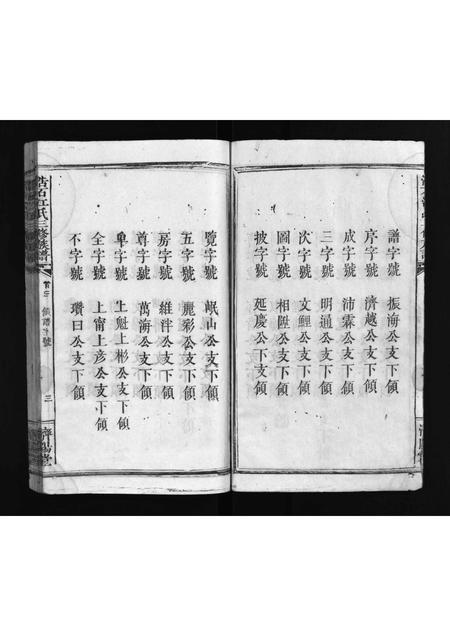 譜字號 振海公支下領
序字號 濟越公支下領
成字號 沛霖公支下領
三字號 明通公支下領
次字號 文鯉公支下領
圖字號 相陞公支下領
披字號 延慶公下支領
覽字號 岷山公支下領
五字號 麗彩公支下領
房字號 維泮公支下領
尊字號 萬海公支下領
卑字號 上魁上彬公支下領
全字號 上甯上彥公支下領
不字號 瓚曰公支下領
江氏三修族譜
三
濟陽堂